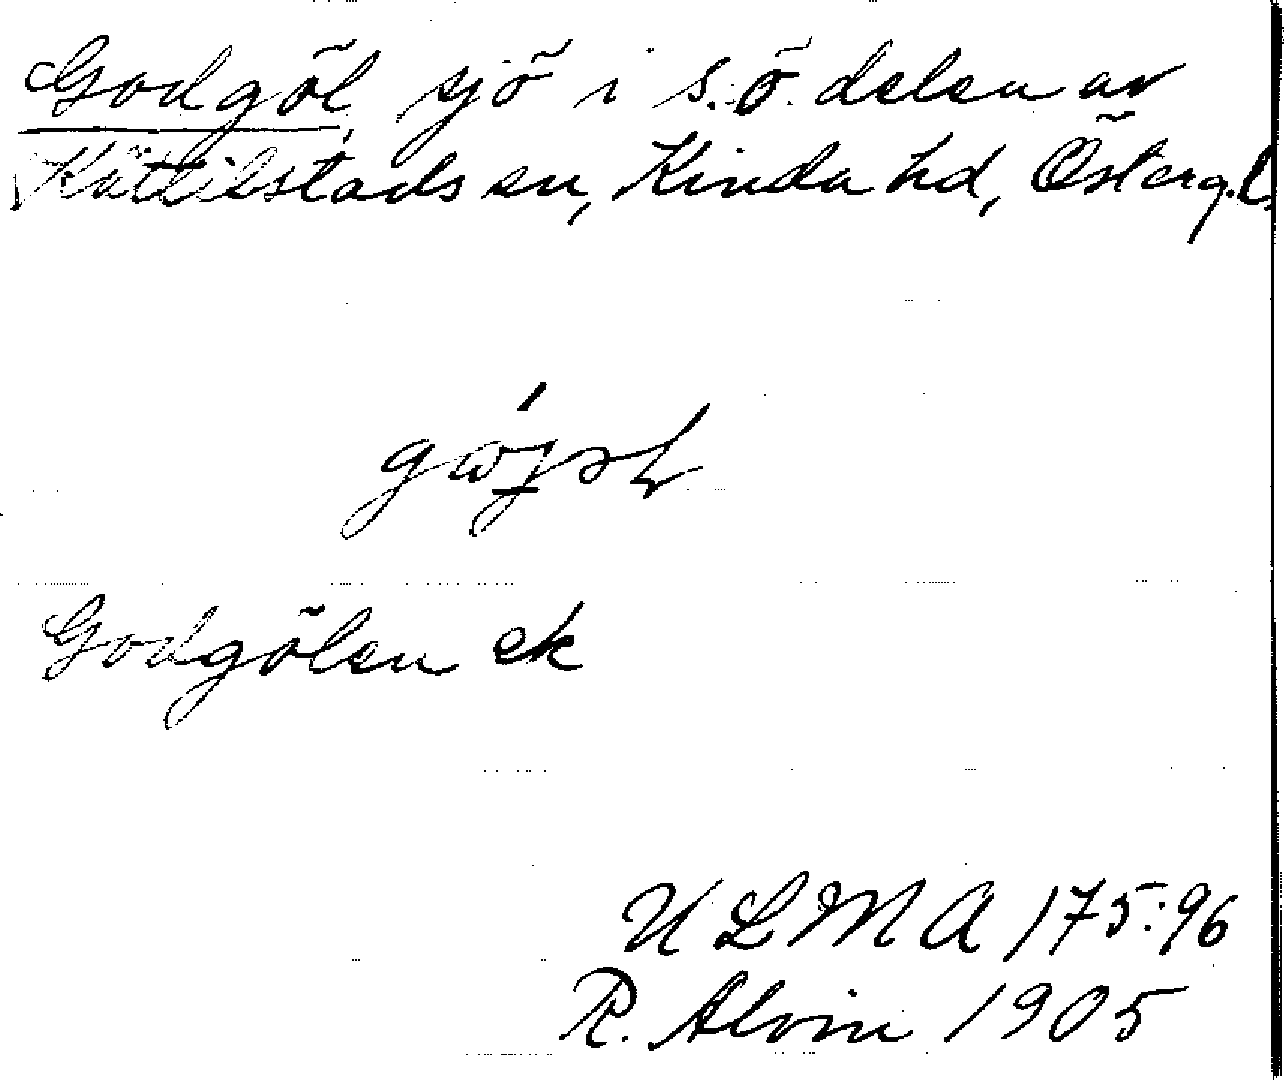 Godgöl, sjö i s.ö. delen av
Kättilstads sn, Kinda hd, Österg. l.
Godgölen ek
ULMA 175:96
R. Alvin 1905